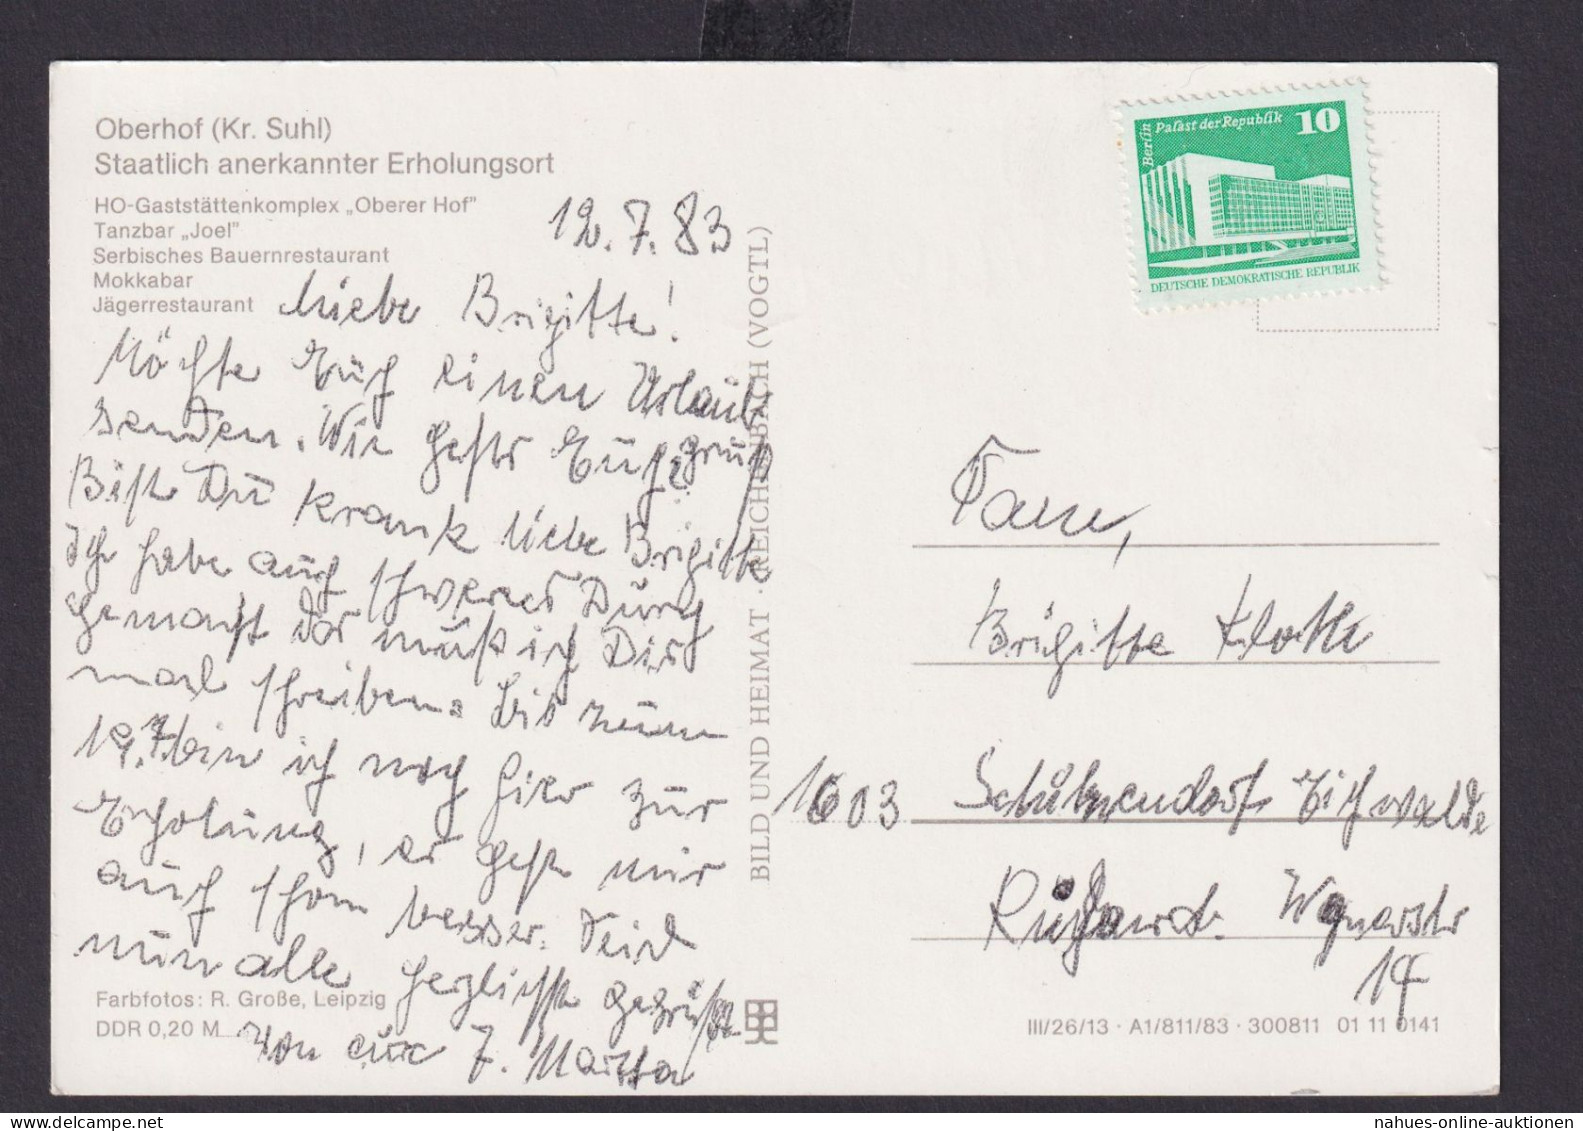 Oberhof (Kr. Suhl)
Staatlich anerkannter Erholungsort
HO-Gaststättenkomplex „Oberer Hof"
Tanzbar „Joel"
Serbisches Bauernrestaurant
Mokkabar
Jägerrestaurant
12.7.83
Liebe Brigitte!
Möchte Euch einen Urlaub
senden. Wie gehts Euch gruß
Bist Du krank liebe Brigitte
Ich habe auch schweres Durch
gemacht das muß ich Dir
mal schreiben. Bis zum
19.7. bin ich noch hier zur
Erholung, es geht mir
auch schon besser. Seid
nun alle herzlichst gegrüßt
Von eure Martha
Farbfotos: R. Große, Leipzig
DDR 0,20 M
BILD UND HEIMAT · REICHENBACH (VOGTL)
Berlin
Palast der Republik 10
DEUTSCHE DEMOKRATISCHE REPUBLIK
Brigitte
1603 Eichwalde
Richard. Wagnerstr
14
III/26/13 · A1/811/83 · 300811 01 11 0141
nahues-online-auktionen